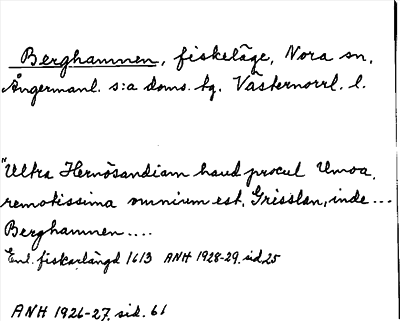 Berghamnen, fiskeläge, Nora sn,
Ångermanl. s:a doms. tg. Västernorrl. l.
"Ultra Hernösandiam haud procul Umoa,
remotissima omnium est, Grisslan, inde ...
Berghamnen ....
Enl. fiskarlängd 1613 ANH 1928-29. sid. 25
ANH 1926-27. sid. 61